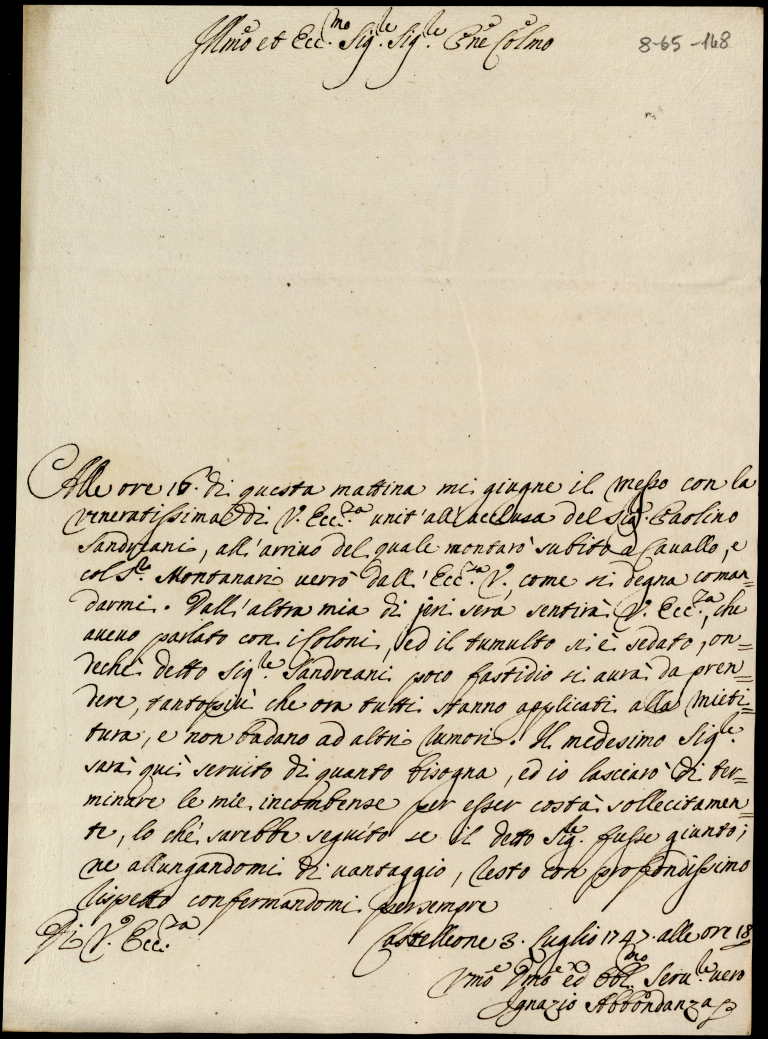 Illmo et Ecc.mo Sig.le Sig.le Pne Colmo
8-65-148
Alle ore 16. di questa mattina mi giugne il messo con la
veneratissima di V. Ecc.za unit' all' acclusa del Sig. Paolino
Sandreani, all' arrivo del quale montarò subito a Cavallo, e
col S.le Montanari verrò dall' Ecc.za V., come si degna coman=
darmi. Dall' altra mia di jeri sera sentirà V. Ecc.za, che
avevo parlato con i Coloni, ed il tumulto si è sedato, on=
deche detto Sig.le Sandreani poco fastidio si aurà da pren=
dere, tantopiù che ora tutti stanno applicati alla mieti=
tura, e non badano ad altri rumori. Il medesimo Sig.le
sarà quì servito di quanto bisogna, ed io lasciarò di ter=
minare le mie incombense per esser costà sollecitamen=
te, lo chè sarebbe seguito se il detto Sig.le fusse giunto;
ne allungandomi di vantaggio, resto con profondissimo
rispetto confermandomi persempre
Di V. Ecc.za
Castelleone 3. Luglio 1747. alle ore 18
Vmo Dmo ed Obl.mo Seru.le vero
Ignazio Abbondanza